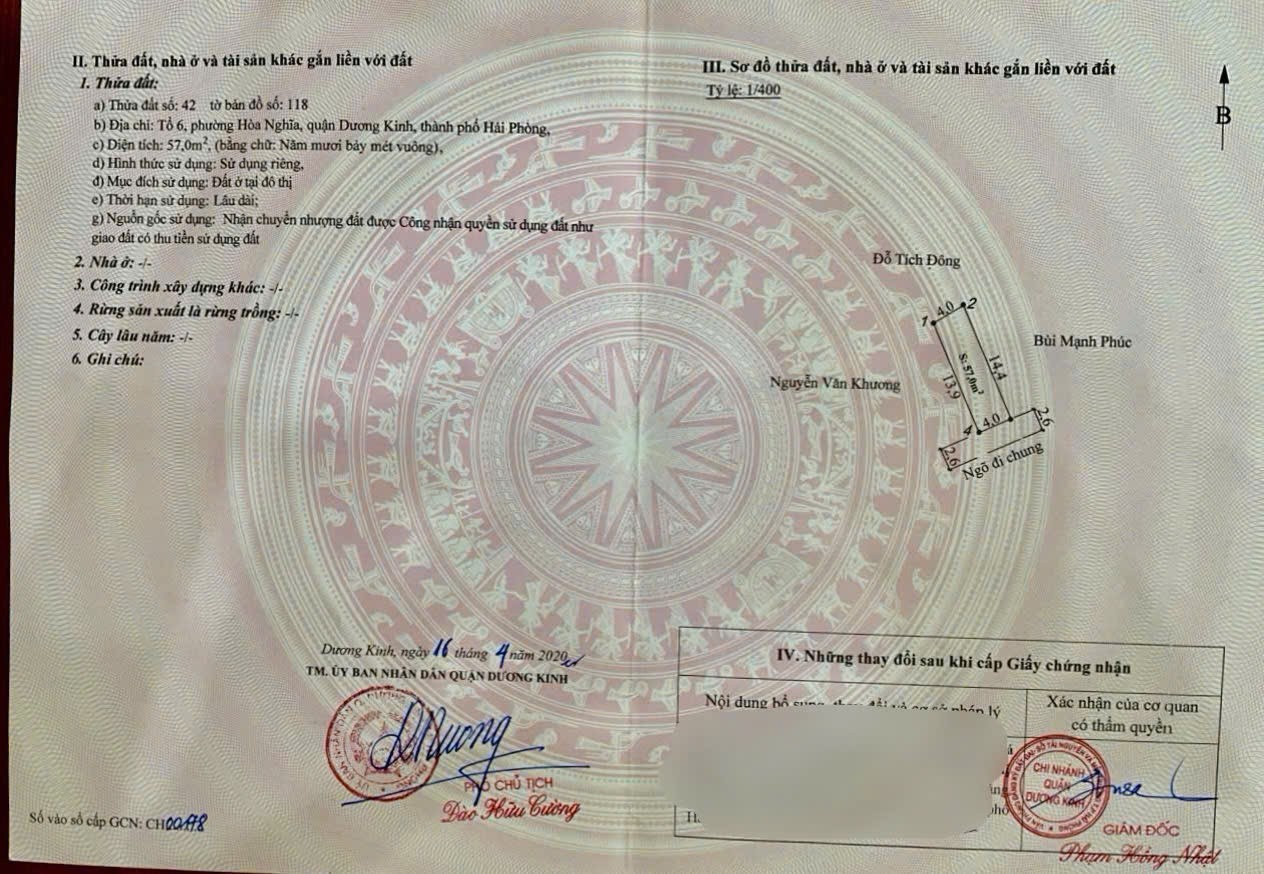 II. Thửa đất, nhà ở và tài sản khác gắn liền với đất
1. Thửa đất:
a) Thửa đất số: 42 tờ bản đồ số: 118
b) Địa chỉ: Tổ 6, phường Hòa Nghĩa, quận Dương Kinh, thành phố Hải Phòng,
c) Diện tích: 57,0m², (bằng chữ: Năm mươi bảy mét vuông),
d) Hình thức sử dụng: Sử dụng riêng,
đ) Mục đích sử dụng: Đất ở tại đô thị
e) Thời hạn sử dụng: Lâu dài;
g) Nguồn gốc sử dụng: Nhận chuyển nhượng đất được Công nhận quyền sử dụng đất như
giao đất có thu tiền sử dụng đất
2. Nhà ở: -/-
3. Công trình xây dựng khác: -/-
4. Rừng sản xuất là rừng trồng: -/-
5. Cây lâu năm: -/-
6. Ghi chú:
Dương Kinh, ngày 16 tháng 4 năm 2020
TM. ỦY BAN NHÂN DÂN QUẬN DƯƠNG KINH
PHÓ CHỦ TỊCH
Đào Hữu Cường
Số vào sổ cấp GCN: CH
III. Sơ đồ thửa đất, nhà ở và tài sản khác gắn liền với đất
Tỷ lệ: 1/400
B
Đỗ Tích Đông
1
4,0
2
Bùi Mạnh Phúc
Nguyễn Văn Khương
S: 57,0m²
14,4
13,9
4
4,0
2,6
2,6
Ngõ đi chung
IV. Những thay đổi sau khi cấp Giấy chứng nhận
Nội dung bổ sung, thay đổi và cơ sở pháp lý
Xác nhận của cơ quan
có thẩm quyền
CHI NHÁNH
QUẬN
DƯƠNG KINH
GIÁM ĐỐC
Phạm Hồng Nhật